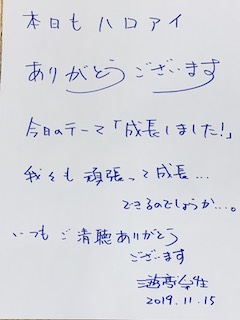 本日もハロアイ
ありがとうございます
今日のテーマ「成長しました!」
我々も頑張って成長...
できるのでしょうか...。
いつもご清聴ありがとう
ございます
2019.11.15